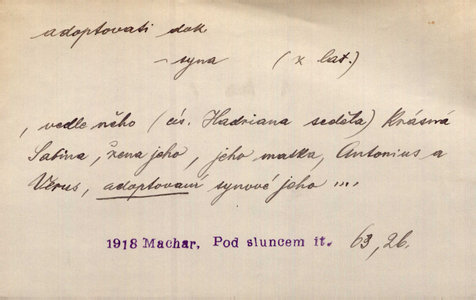 adoptovati dok
- syna (x lat.)
, vedle něho (cís. Hadriana seděla) krásná
Sabina, žena jeho, jeho matka, Antonius a
Verus, adoptovaní synové jeho ...
1918 Machar, Pod sluncem it. 63, 26.